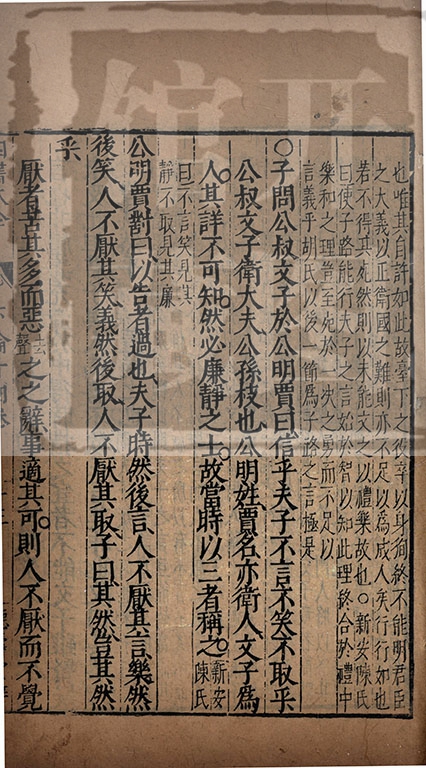 也唯其自許如此故臺丁之役卒以身徇終不能明君臣
之大義以正衛國之難則亦不足以爲成人矣行行如也
若不得其死然則以未能文之以禮樂故也○新安陳氏
曰使子路能行夫子之言始於智以知此理終合於禮中
樂和之理豈至死於一決之勇而不足以
言義乎胡氏以後一節爲子路之言極是
○子問公叔文子於公明賈曰信乎夫子不言不笑不取乎
公叔文子衛大夫公孫枝也公明姓賈名亦衛人文子爲
人其詳不可知然必廉靜之士故當時以三者稱之
新安陳氏
曰不言笑見其
靜不取見其廉
公明賈對曰以告者過也夫子時然後言人不厭其言樂然
後笑人不厭其笑義然後取人不厭其取子曰其然豈其然
乎
厭者苦其多而惡去聲之之辭事適其可則人不厭而不覺